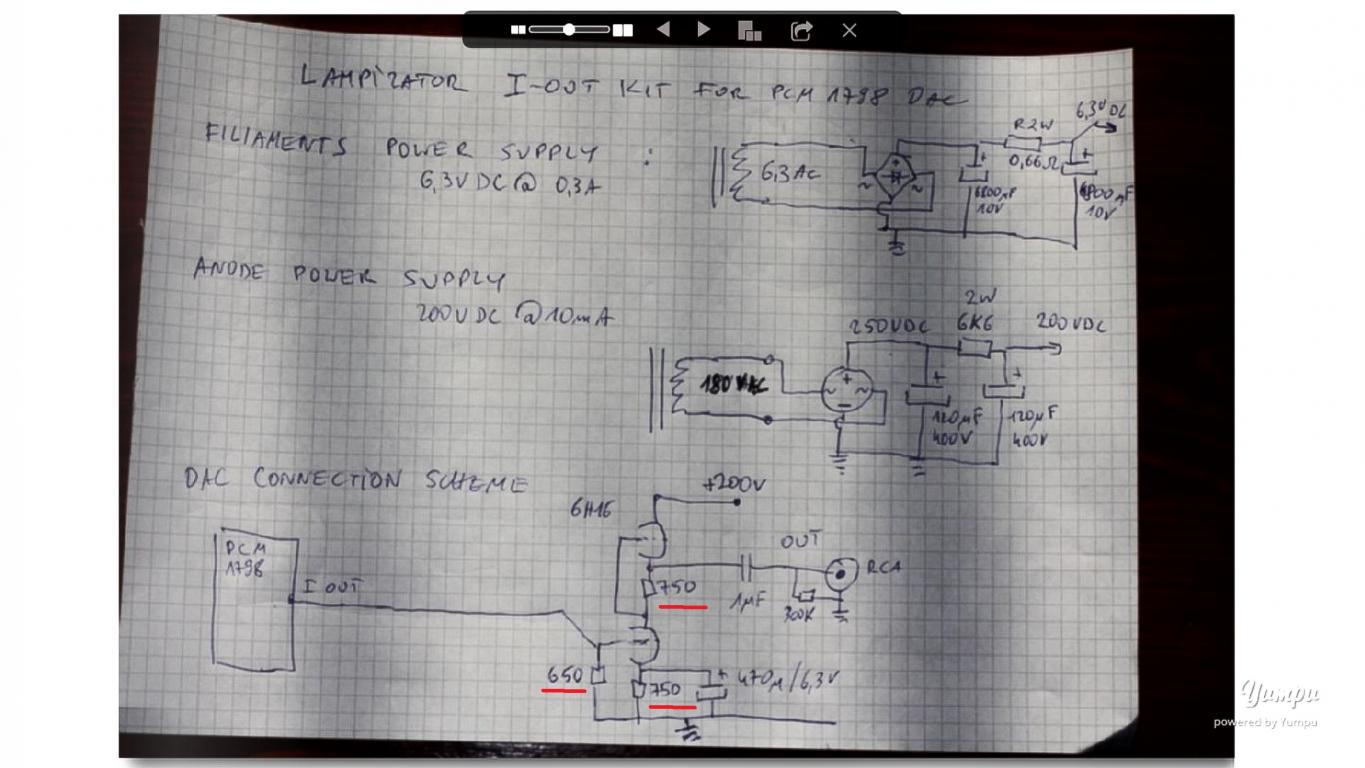 LAMPIZATOR I-OUT KIT FOR PCM 1798 DAC
FILIAMENTS POWER SUPPLY :
6,3V DC @ 0,3A
6,3AC
+
~
~
R2W
0,66Ω
6,3V DC
+
6800µF
10V
+
6800µF
10V
ANODE POWER SUPPLY
200V DC @ 10mA
180 VAC
~ + ~
-
250VDC
2W
6K6
200VDC
+
120µF
400V
+
120µF
400V
DAC CONNECTION SCHEME
PCM
1798
I OUT
6H16
+200V
750
1µF
OUT
300K
RCA
650
750
+
470µ/6,3V
Yumpu
powered by Yumpu